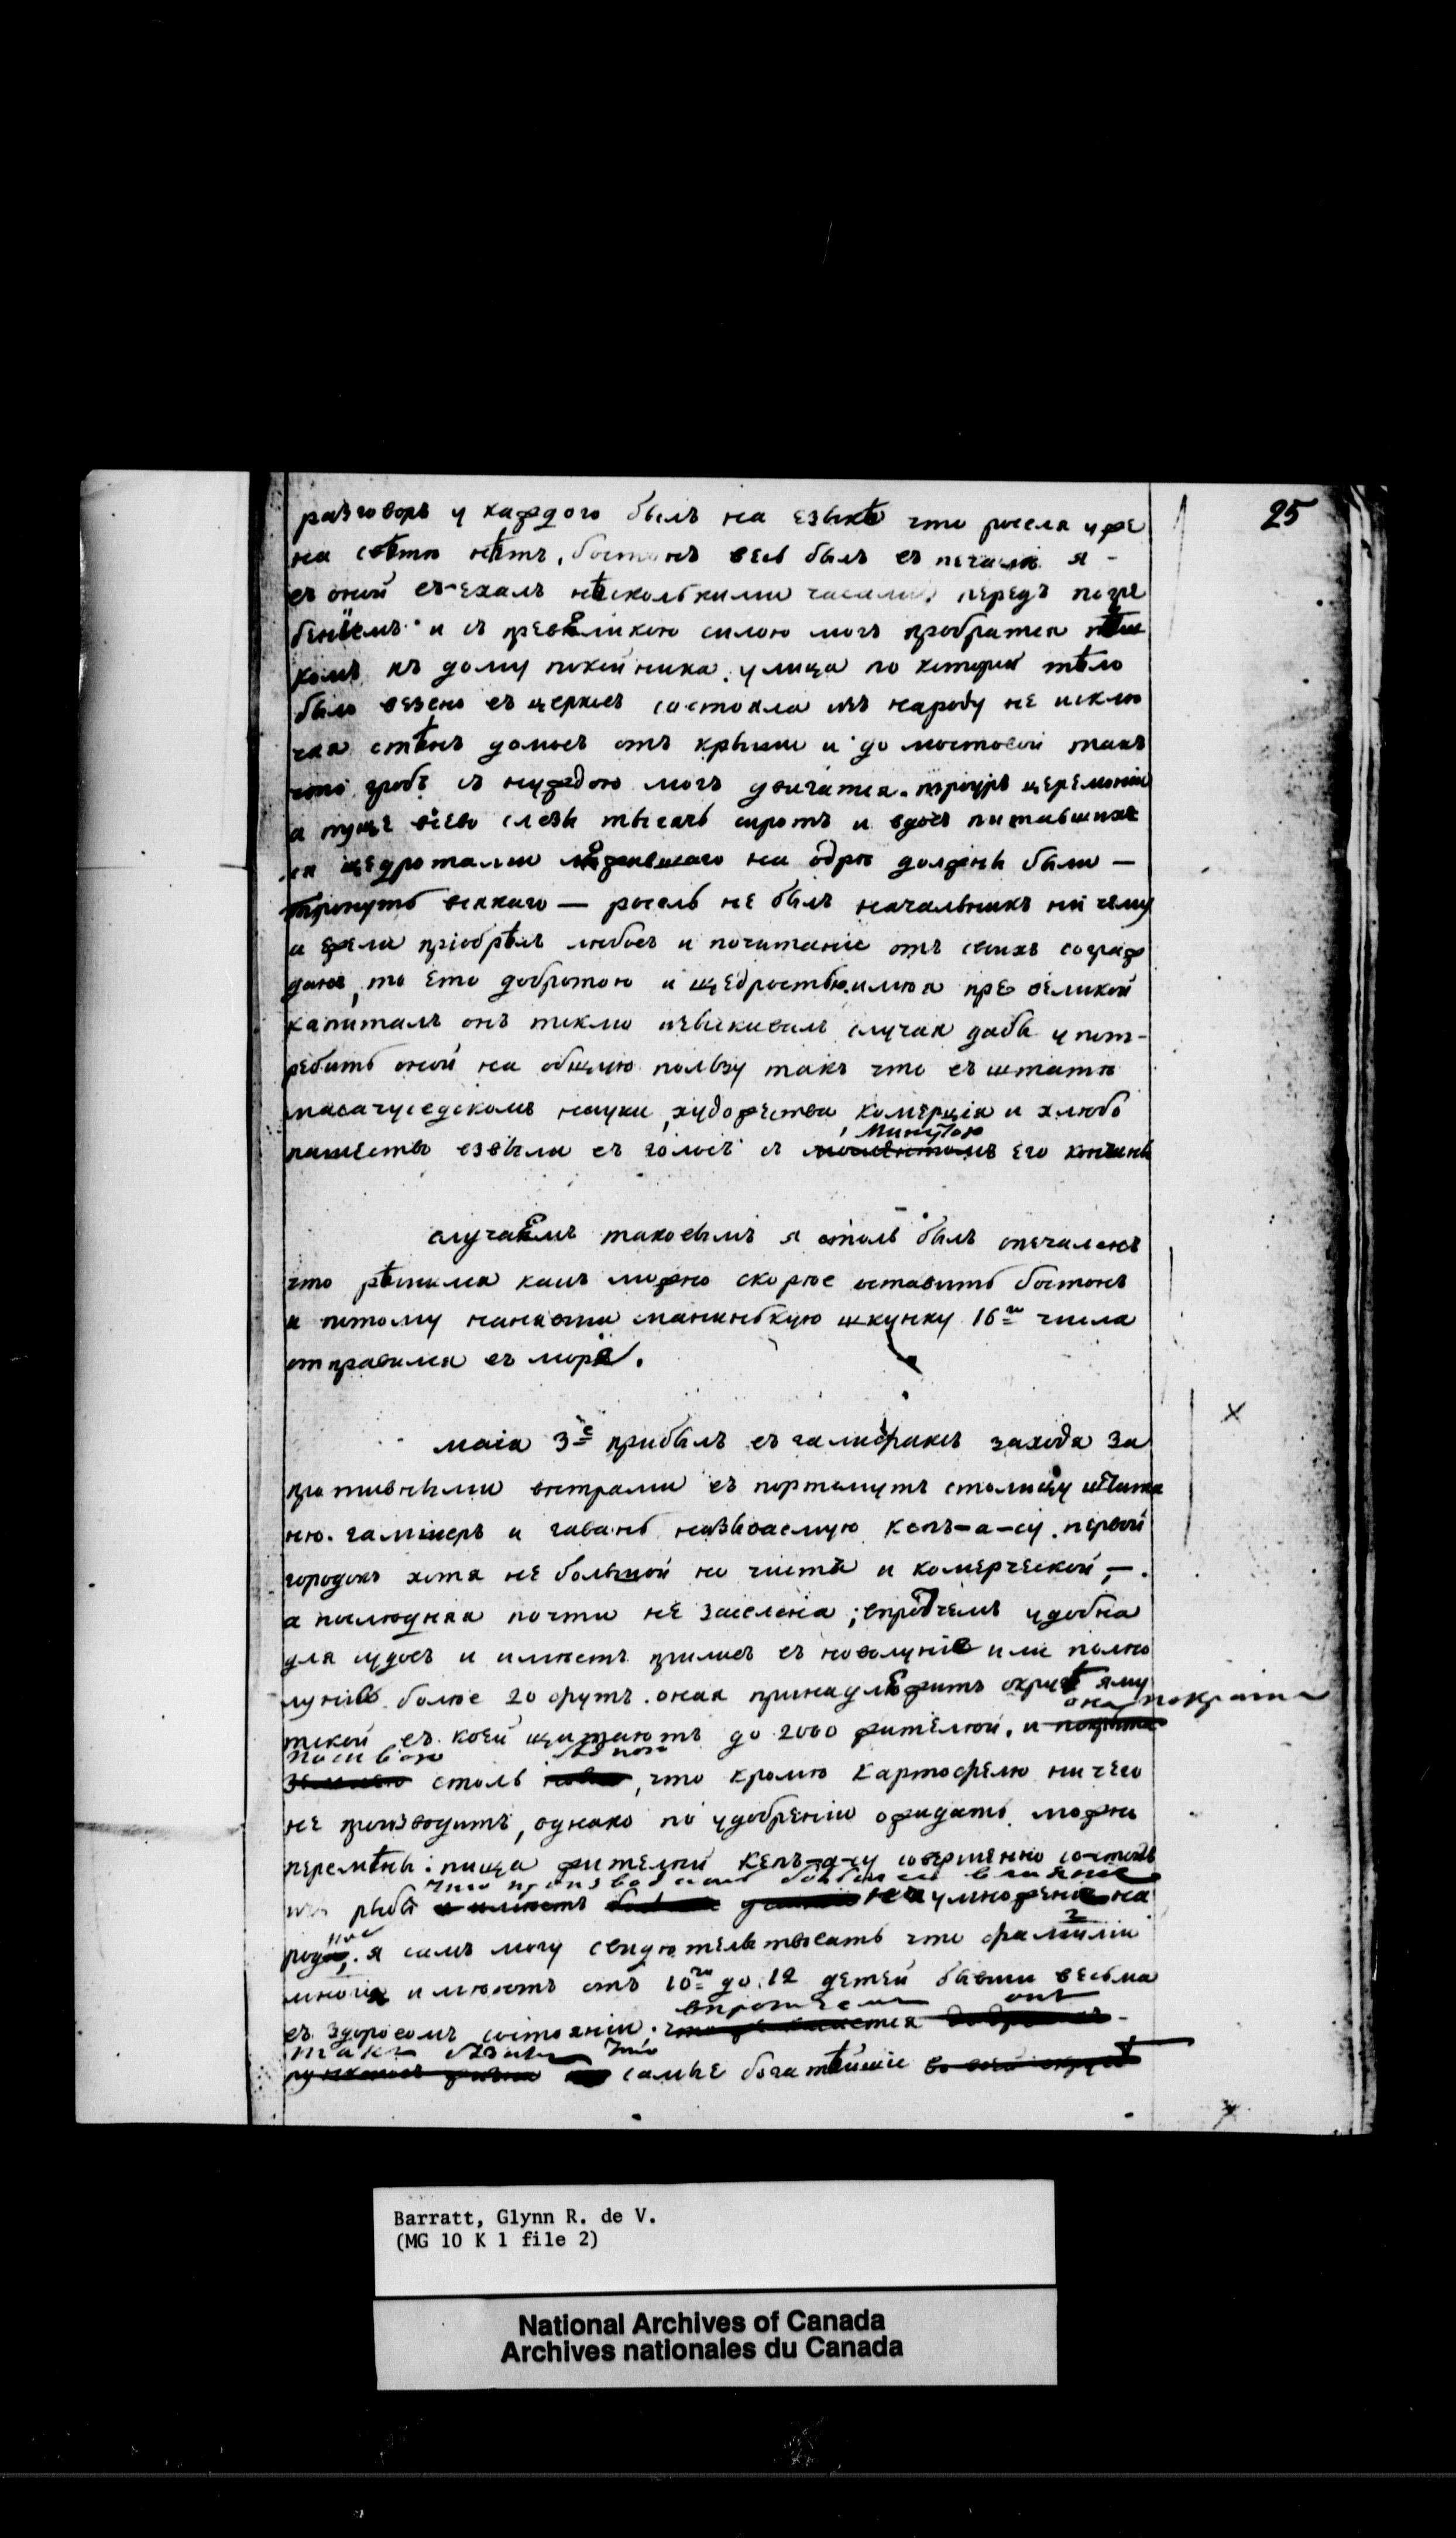 25
разговоръ у каждого былъ на езыкѣ что росела уже
на свѣтѣ нѣтъ, бостонъ весь былъ въ печали я -
въ оной въ-ехалъ нѣсколькими часами передъ погре
бенiемъ и съ превеликою силою могъ пробратся пѣш
комъ къ дому покойника. улица по которой тѣло
было везено въ церковь состояла изъ народу не исклю
чая стѣнъ домовъ отъ крыши и до мостовой такъ
что гробъ съ нуждою могъ двигатся. церемонiи
а пуще всево слезы тысячь сиротъ и вдовъ питавшихъ
ся щедротами лежавшаго на одрѣ должны были —
тронуть всякаго — росель не былъ начальникъ ни чему
и ежели прiобрѣлъ любовь и почитанiе отъ своихъ сограж
данъ, то ето добротою и щедростью. имѣя пре великой
капиталъ онъ токмо изыскивалъ случая дабы упот-
ребить оной на общую пользу такъ что въ штатѣ
масачуседскомъ науки, художества комерцiя и хлѣбо
пашество взвыли въ голосъ съ минутою его кончины
случаемъ таковымъ я столь былъ опечаленъ
что рѣшился какъ можно скорѣе оставить бостонъ
и потому нанявши маниньkую шкунку 16го числа
отправился въ море.
маiя 3е прибылъ въ галифаксъ заходя за
противными вѣтрами въ портсмутъ столицу штата
ню. гамширъ и гавань называемую кепъ-а-су. первой
городокъ хотя не большой но чистъ и комерческой, —
а послюдняя почти не заселена; впротчемъ удобна
для судовъ и имѣетъ приливъ въ новолунiе или полно
лунiе болѣе 20 футъ. оная принадлежитъ округѣ яму
тской въ коей щитаютъ до 2000 жителей, и она покрыта
что кромѣ картофелю ничего
не производитъ, однако по удобренiю ожидать можно
перемѣны: пища жителей кепъ-а-су совершенно состоитъ
изъ рыбы что производитъ большое влиянiе на умноженiе на
рода, я самъ могу свидѣтельствовать что фамилiи
многiя имѣютъ отъ 10ти до 12 детей бывши весьма
въ здоровомъ состоянiи. впротчемъ онѣ
такъ что самые богатѣйшiе во всей округѣ
Barratt, Glynn R. de V.
(MG 10 K 1 file 2)
National Archives of Canada
Archives nationales du Canada